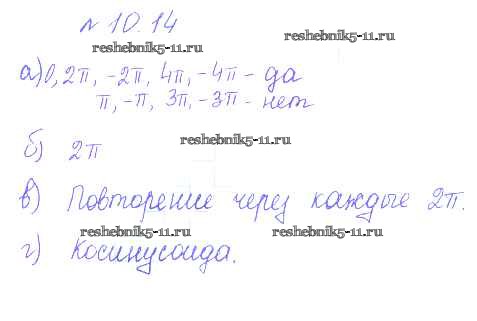 № 10.14
reshebnik5-11.ru
reshebnik5-11.ru
а) 0, 2π, -2π, 4π, -4π - да
π, -π, 3π, -3π - нет
reshebnik5-11.ru
б) 2π
в) Повторение через каждые 2π.
reshebnik5-11.ru
reshebnik5-11.ru
г) Косинусоида.